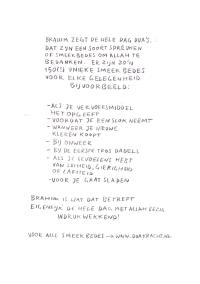 BRAHIM ZEGT DE HELE DAG DUA'S.
DAT ZYN EEN SOORT SPREUKEN
OF SMEEKBEDES OM ALLAH TE
BEDANKEN. ER ZIJN ZO'N
150(!) UNIEKE SMEEKBEDES
VOOR ELKE GELEGENHEID
BIJVOORBEELD:
- ALS JE VERVOERSMIDDEL
HET OPGEEFT
- VOORDAT JE EEN SLOK NEEMT
- WANNEER JE NIEUWE
KLEREN KOOPT
- BIJ ONWEER
- BIJ DE EERSTE TROS DADELS
- ALS JE GEVOELENS HEBT
VAN LUIHEID, GIERIGHEID
OF LAFHEID
- VOOR JE GAAT SLAPEN
BRAHIM IS WAT DAT BETREFT
EIGENLIJK DE HELE DAG MET ALLAH BEZIG
INDRUKWEKKEND!
VOOR ALLE SMEEKBEDES → WWW.DUAKRACHT.NL